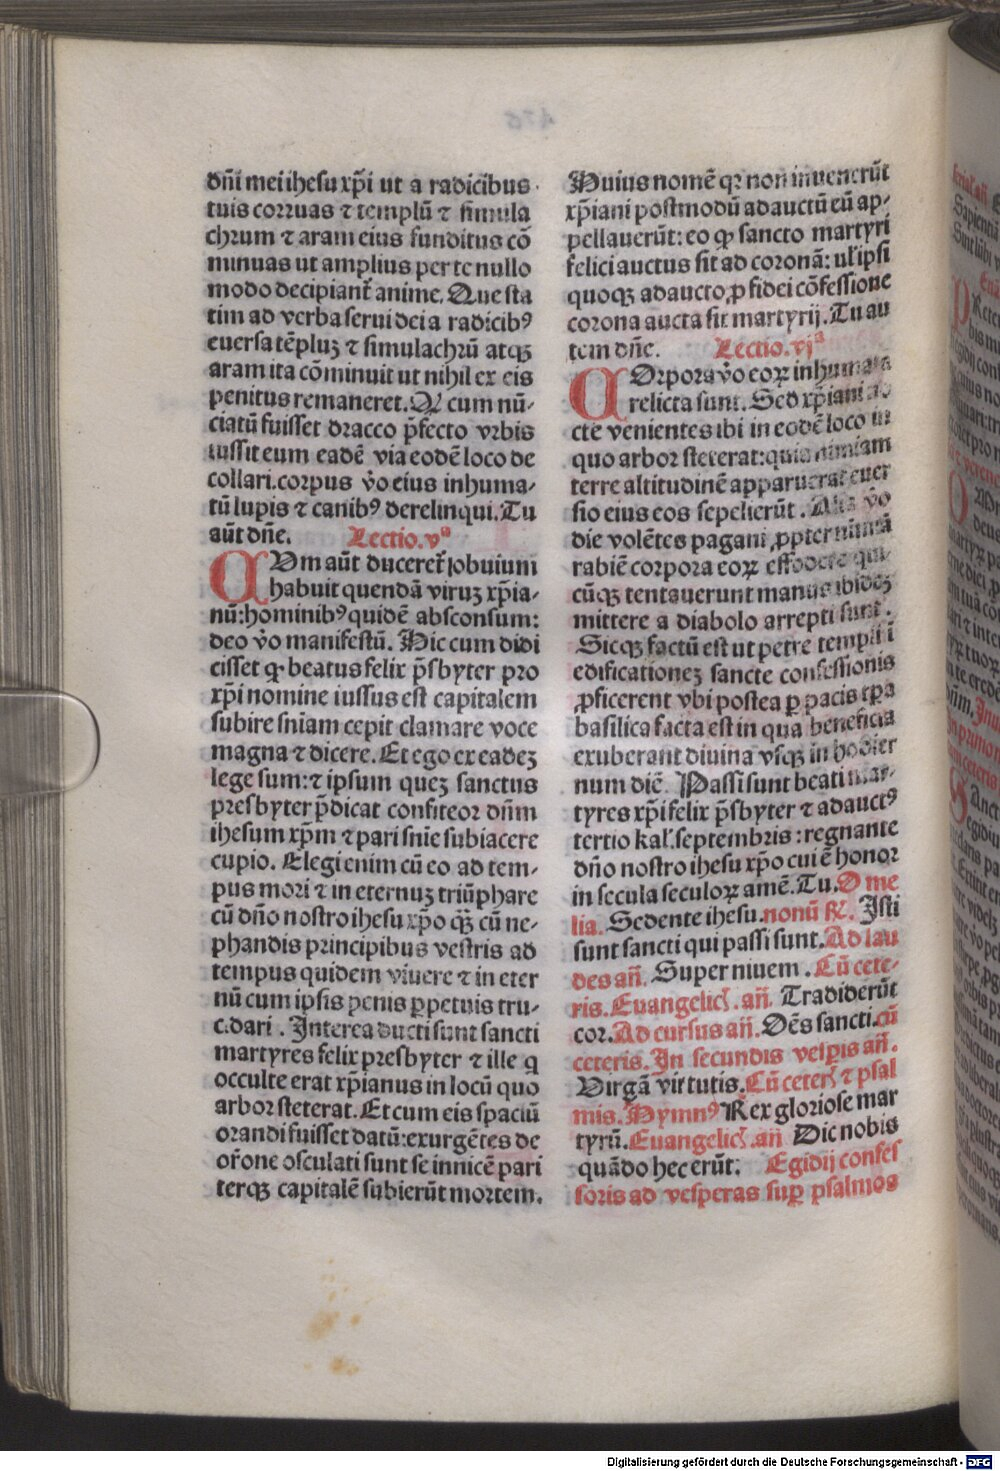 dñi mei ihesu xp̄i ut a radicibus
tuis corruas ⁊ templū ⁊ simula
chrum ⁊ aram eius funditus cō
minuas ut amplius per te nullo
modo decipiant᷑ anime. Que sta
tim ad verba serui dei a radicibꝰ
euersa tēpluꝫ ⁊ simulachrū atqꝫ
aram ita cōminuit ut nihil ex eis
penitus remaneret. cum nū-
ciatū fuisset dracco p̄fecto vrbis
iussit eum eadē via eodē loco de
collari. corpus v̄o eius inhuma-
tū lupis ⁊ canibꝰ derelinqui. Tu
aūt dn̄e. Lectio. vᵃ
CVm aūt duceret᷑ job uiuni
habuit quendā viruꝫ xp̄ia-
nū: hominibꝰ quidē absconsum:
deo v̄o manifestū. Hic cum didi
cisset ꝙ beatus felix p̄sbyter pro
xp̄i nomine iussus est capitalem
subire sniam cepit clamare voce
magna ⁊ dicere. Et ego ex eadeꝫ
lege sum: ⁊ ipsum queꝫ sanctus
presbyter p̄dicat confiteor dn̄m
ihesum xp̄m ⁊ pari snīe subiacere
cupio. Elegi enim cū eo ad tem-
pus mori ⁊ in eternuꝫ triūphare
cū dn̄o nostro ihesu xp̄o qꝫ̄ cū ne-
phandis principibus vestris ad
tempus quidem viuere ⁊ in eter
nū cum ipsis penis ꝑpetuis tru-
c.dari . Interea ducti sunt sancti
martyres felix presbyter ⁊ ille q
occulte erat xp̄ianus in locū quo
arbor steterat. Et cum eis spaciū
orandi fuisset datū: exurgētes de
or̄one osculati sunt se inuicē pari
terqꝫ capitalē subierūt mortem.
Huius nomē qꝛ non inuenerūt
xp̄iani postmodū adauctū eū ap-
pellauerūt: eo ꝙ sancto martyri
felici auctus sit ad coronā: ul̓ ipsi
quoqꝫ adaucto ꝓ fidei cōfessione
corona aucta sit martyrij. Tu au
tem dn̄e. Lectio. vjᵃ
COrpora v̄o eoꝝ inhumata
relicta sunt. Sed xp̄iani no
cte venientes ibi in eodē loco in
quo arbor steterat: quis nimiam
terre altitudinē apparuerat euer
sio eius eos sepelierūt . Alia v̄o
die volētes pagani ꝓpter nimiā
rabiē corpora eoꝝ effodere qui-
cūqꝫ tentauerunt manus ibideꝫ
mittere a diabolo arrepti sunt .
Sicqꝫ factū est ut petre templi ī
edificationeꝫ sancte confessionis
ꝓficerent vbi postea ꝑ pacis tp̄a
basilica facta est in qua beneficia
exuberant diuina vsqꝫ in hodier
num diē. Passi sunt beati mar-
tyres xp̄i felix p̄sbyter ⁊ adauctꝰ
tertio kal̓. septembris : regnante
dn̄o nostro ihesu xp̄o cui ē honor
in secula seculoꝝ amē. Tu. Ome
lia. Sedente ihesu. nonū ℟. Isti
sunt sancti qui passi sunt. Ad lau
des an̄. Super niuem . Cū cete-
ris. Euangelic̓. an̄. Tradiderūt
cor. Ad cursus an̄. Oēs sancti. cū
ceteris. In secundis vesꝑis an̄.
Virgā virtutis. Cū ceter̓ ⁊ psal
mis. Hymnꝰ Rex gloriose mar
tyrū. Euangelic̓. an̄ Dic nobis
quādo hec erūt: Egidij confes
soris ad vesperas suꝑ psalmos
Digitalisierung gefördert durch die Deutsche Forschungsgemeinschaft - DFG